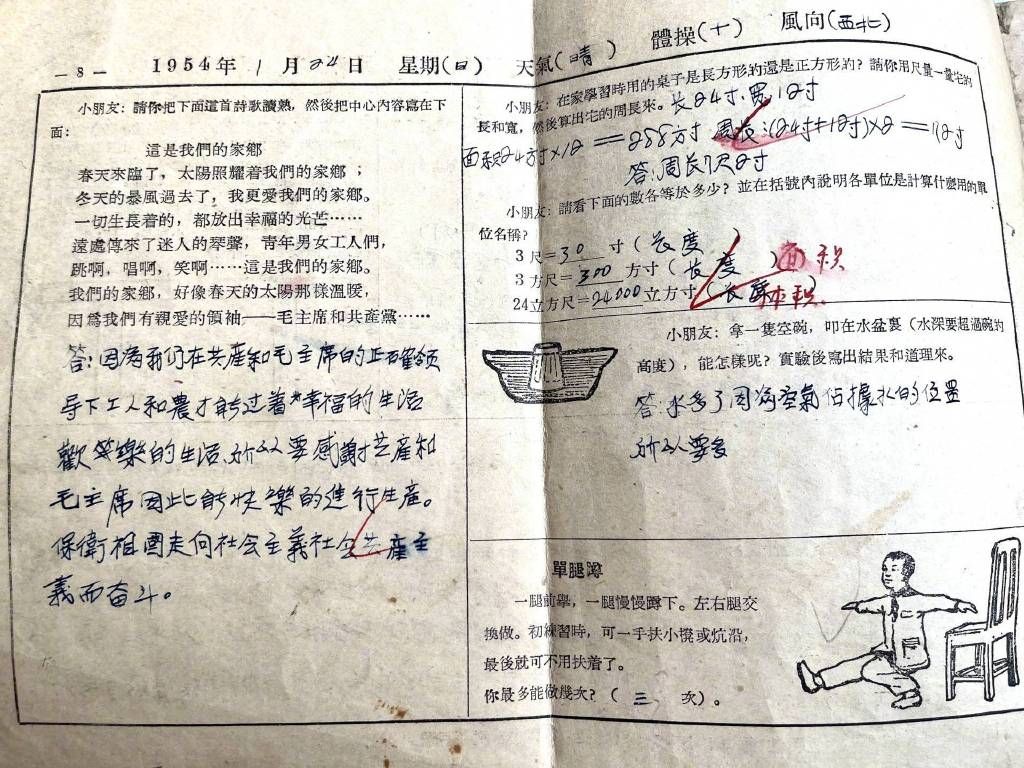 — 8 — 1954年 1月 24日 星期(日) 天氣(晴) 體操(十) 風向(西北)
小朋友:請你把下面這首詩歌讀熟,然後把中心內容寫在下
面:
這是我們的家鄉
春天來臨了,太陽照耀着我們的家鄉;
冬天的暴風過去了,我更愛我們的家鄉。
一切生長着的,都放出幸福的光芒……
遠處傳來了迷人的琴聲,青年男女工人們,
跳啊,唱啊,笑啊……這是我們的家鄉。
我們的家鄉,好像春天的太陽那樣溫暖,
因爲我們有親愛的領袖——毛主席和共產黨……
答:因為我们在共產和毛主席的正確領
导下工人和農才能过着幸福的生活
歡笑樂的生活.所以要感謝共產和
毛主席因此能快樂的進行生產。
保衛祖國走向社会主義社会共產主
義而奋斗。
小朋友:在家學習時用的桌子是長方形的還是正方形的?請你用尺量一量它的
長和寬,然後算出它的周長來。长24寸.寬12寸
面积24方寸×12=288方寸 周长:(24寸+12寸)×2=72寸
答:周長7尺2寸
小朋友:請看下面的數各等於多少?並在括號內說明各單位是計算什麼用的單
位名稱?
3尺=30寸(长度)
3方尺=300方寸(长度)面积
24立方尺=24000立方寸(长度)体积
小朋友:拿一隻空碗,叩在水盆裏(水深要超過碗的
高度),能怎樣呢?實驗後寫出結果和道理來。
答:水多了因為空氣佔據水的位置
所以要多
單腿蹲
一腿前擧,一腿慢慢蹲下。左右腿交
換做。初練習時,可一手扶小櫈或炕沿,
最後就可不用扶着了。
你最多能做幾次?(三 次)。